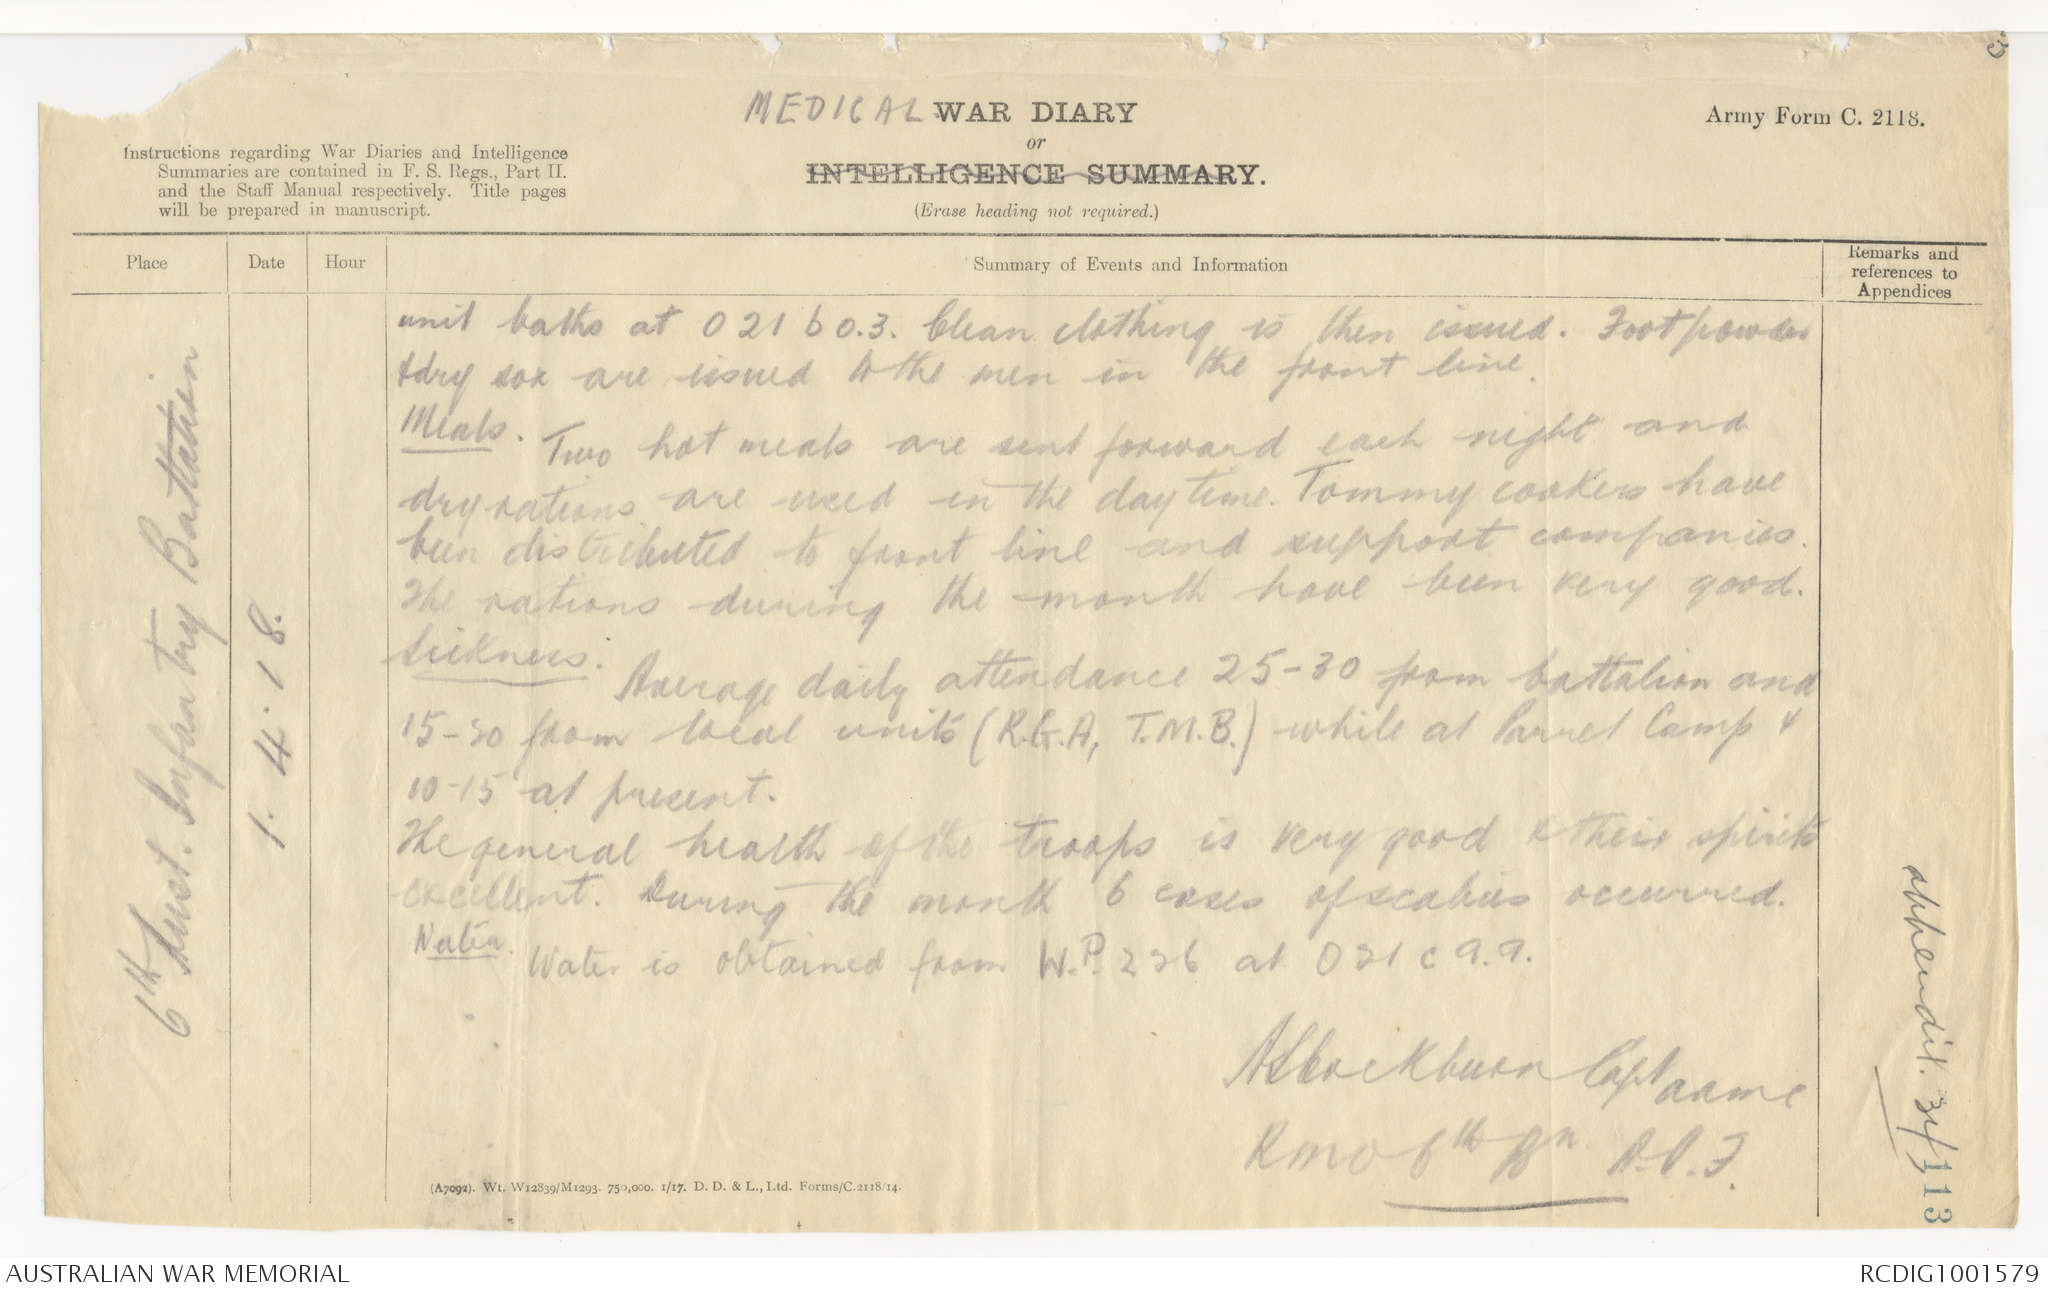 MEDICAL WAR DIARY
or
INTELLIGENCE SUMMARY.
(Erase heading not required.)
Army Form C. 2118.
Instructions regarding War Diaries and Intelligence
Summaries are contained in F. S. Regs., Part II.
and the Staff Manual respectively. Title pages
will be prepared in manuscript.
Place
Date
Hour
Summary of Events and Information
Remarks and
references to
Appendices
6th Aust. Infantry Battalion
1.4.18.
unit baths at O 21 b 0.3. Clean clothing is then issued. Foot powder
& dry sox are issued to the men in the front line.
Meals. Two hot meals are sent forward each night and
dry rations are used in the daytime. Tommy cookers have
been distributed to front line and support companies.
The rations during the month have been very good.
Sickness. Average daily attendance 25-30 from battalion and
15-20 from local units (R.G.A, T.M.B.) while at Parret Camp &
10-15 at present.
The general health of the troops is very good & their spirits
excellent. During the month 6 cases of scabies occurred.
Water. Water is obtained from W.P. 226 at O 21 c 9.9.
Capt aamc
RMO 6th Bn. A.I.F.
appendix.
113
(A7092). Wt. W12839/M1293. 750,000. 1/17. D. D. & L., Ltd. Forms/C.2118/14.
AUSTRALIAN WAR MEMORIAL
RCDIG1001579